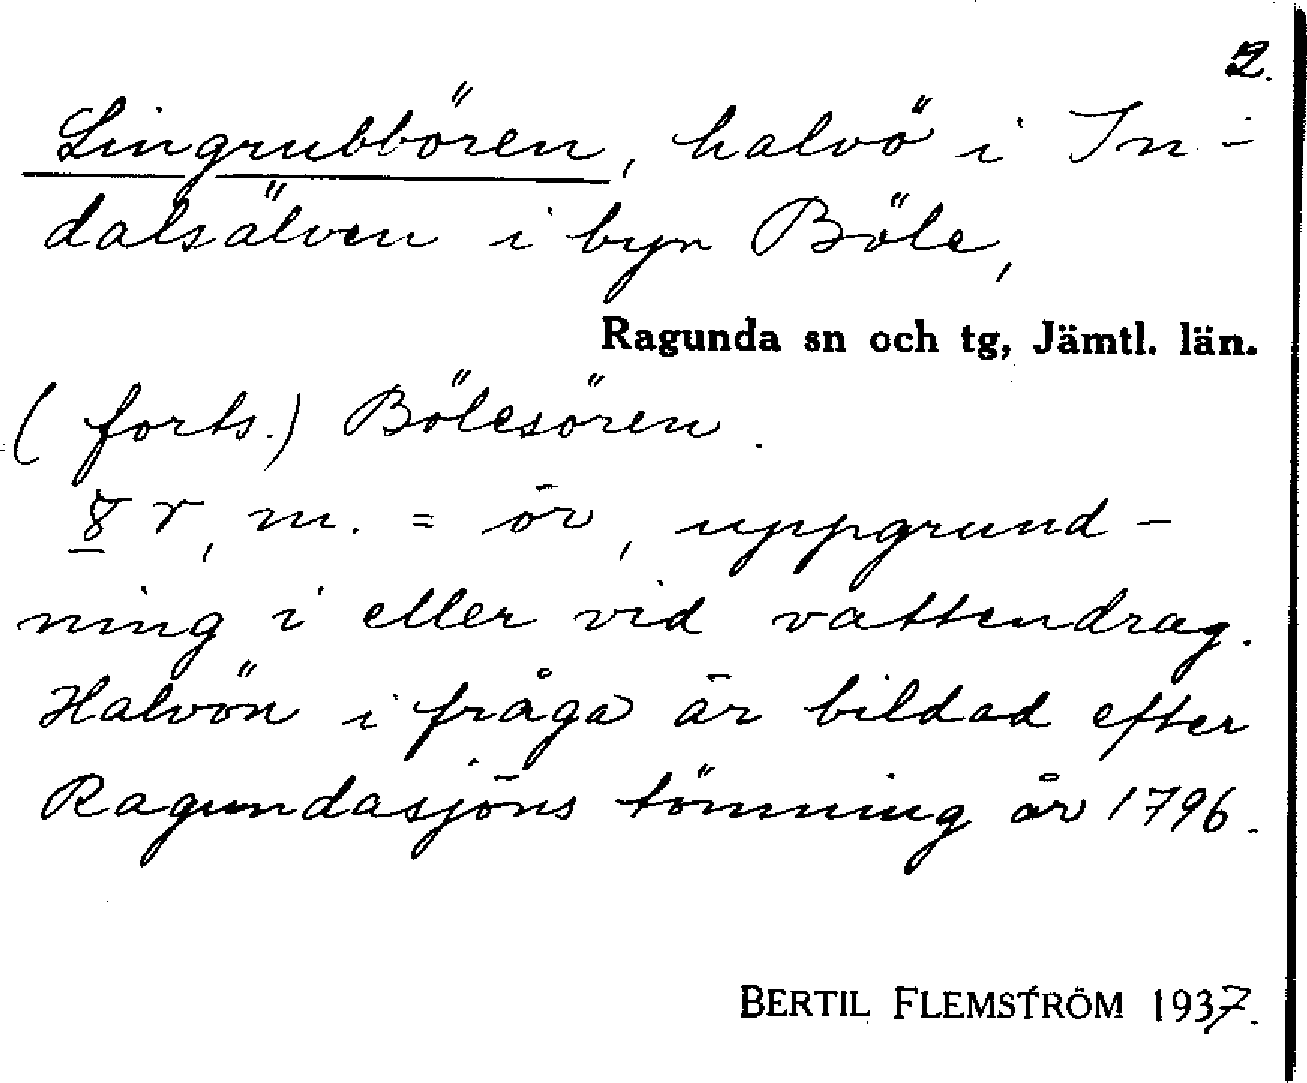 2.
Lingrubbören, halvö i In-
dalsälven i byn Böle,
Ragunda sn och tg, Jämtl. län.
(forts.) Bölesören.
r, m. = ör, uppgrund-
ning i eller vid vattendrag.
Halvön i fråga är bildad efter
Ragundasjöns tömning år 1796.
BERTIL FLEMSTRÖM 1937.